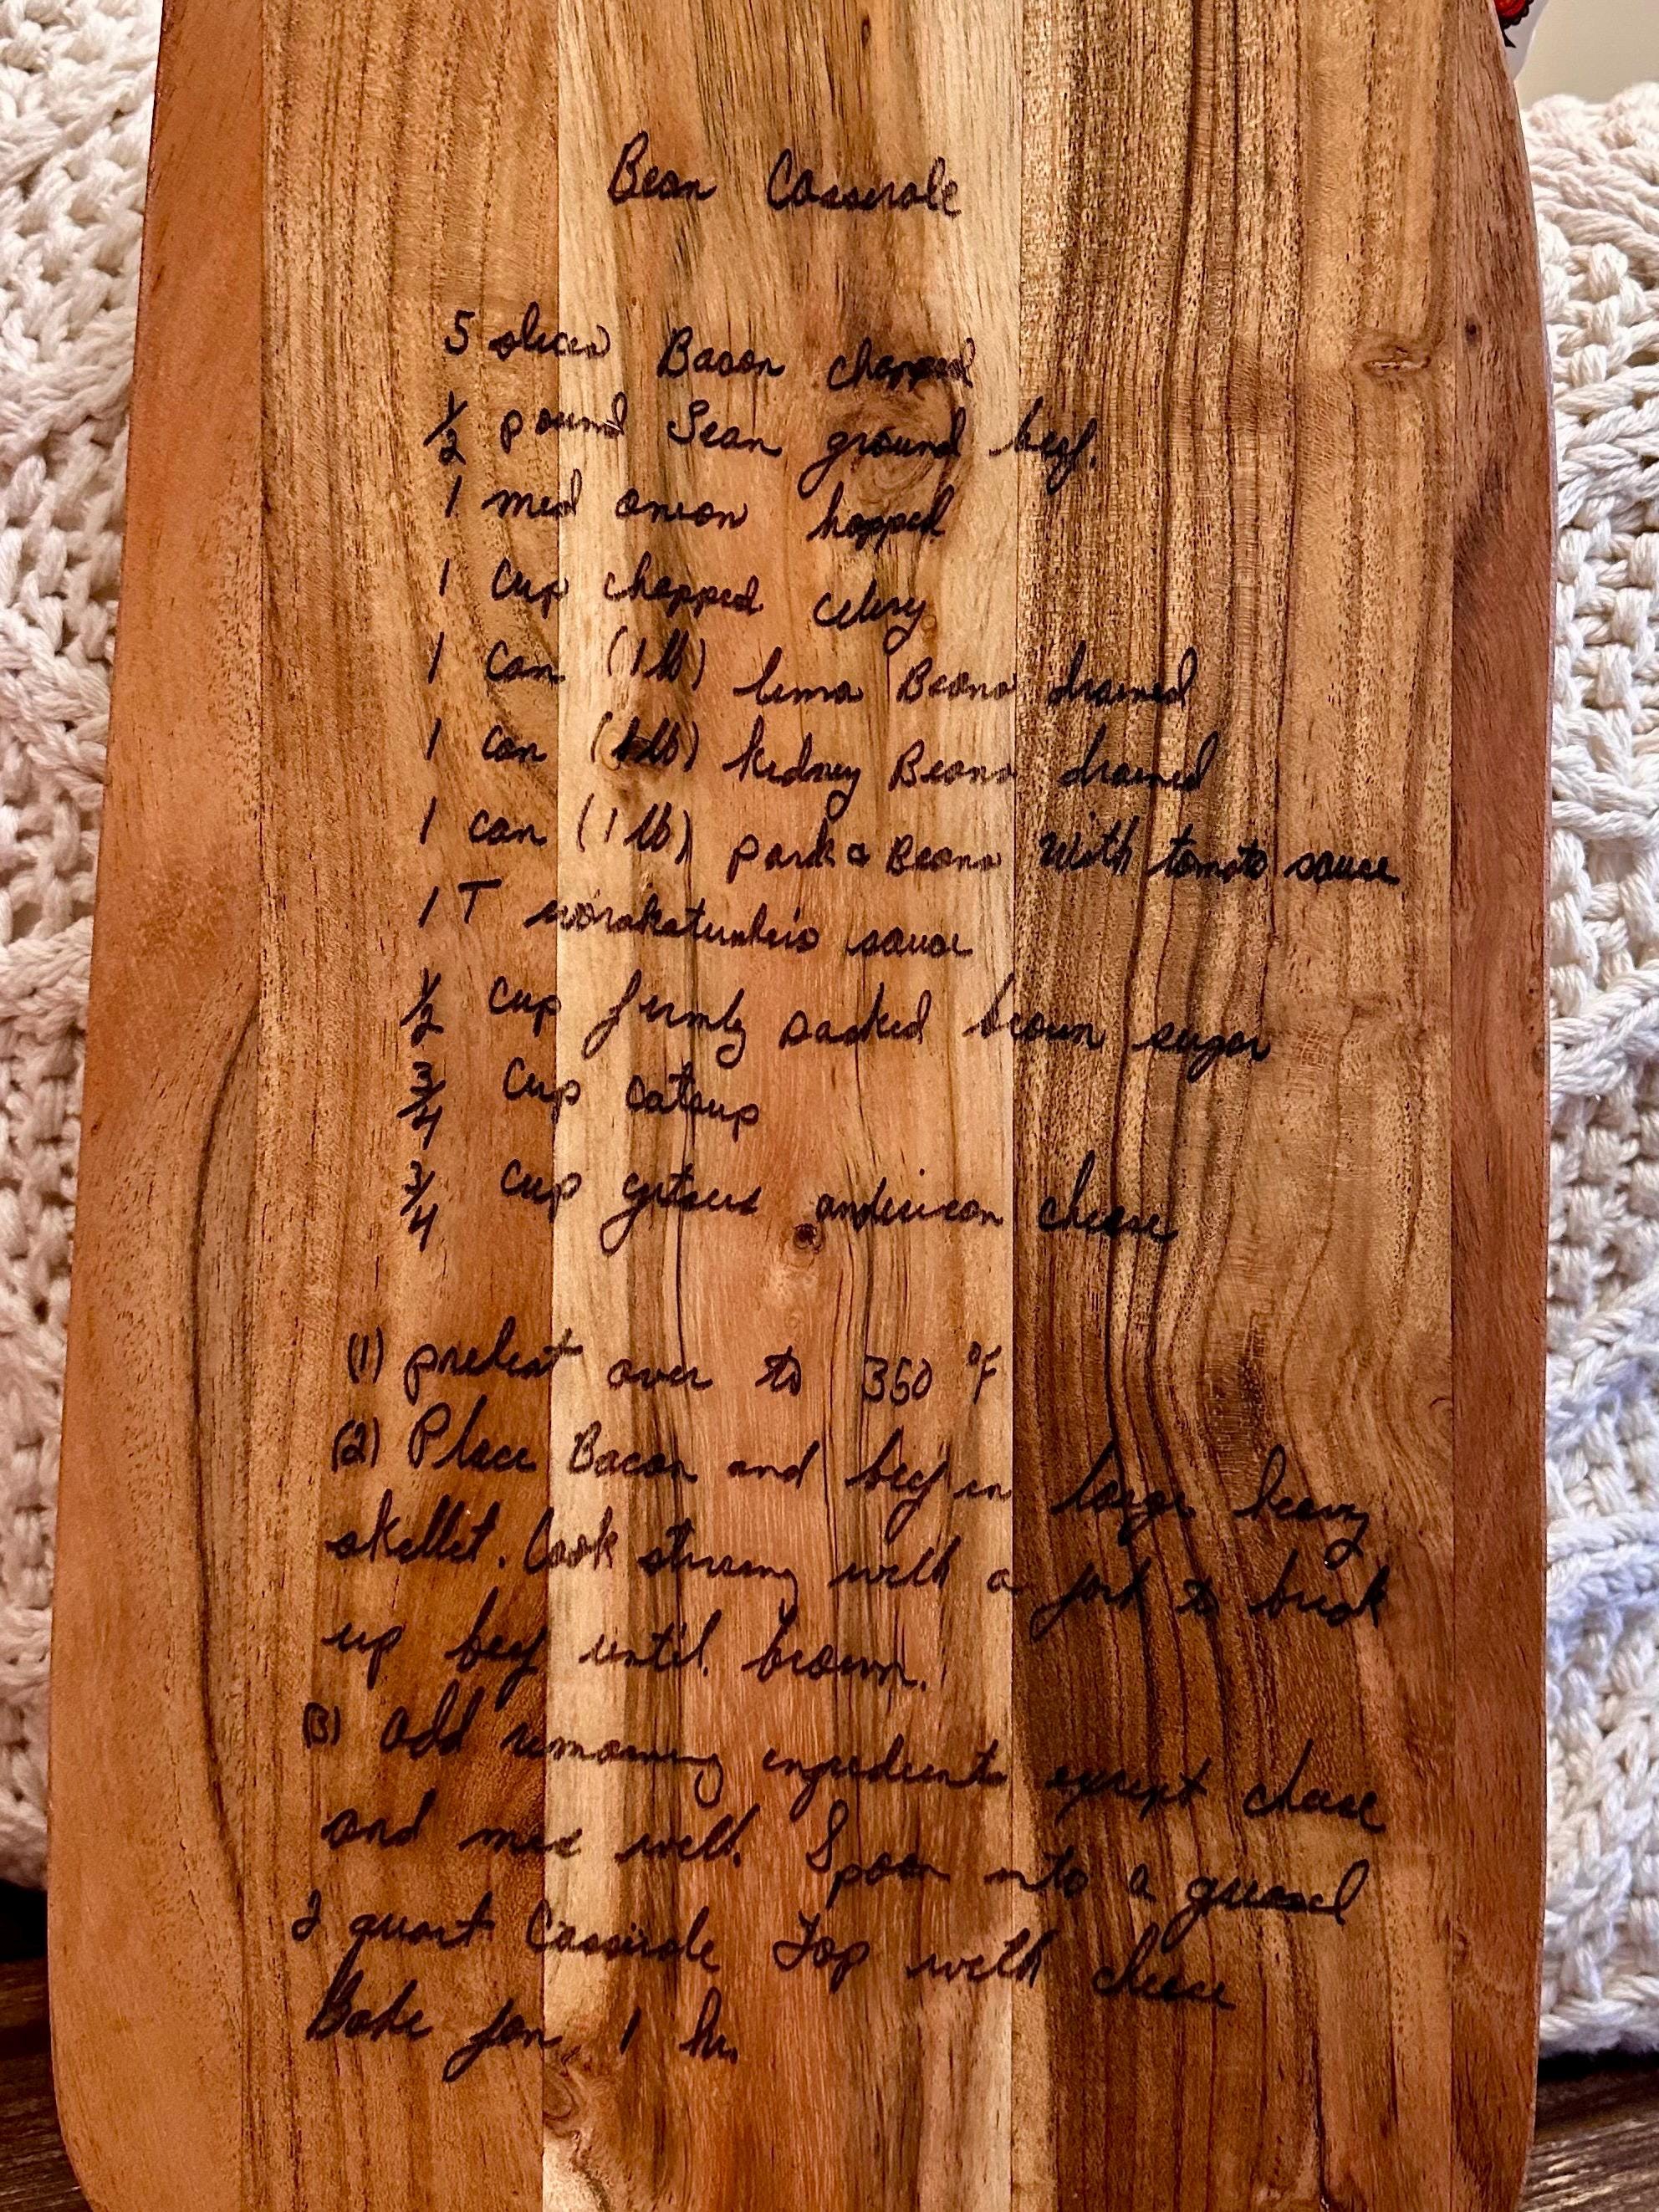 Bean Casserole
5 slices Bacon chopped
1/2 pound Lean ground beef.
1 med onion hopped
1 cup chopped celery
1 can (1 lb) lima Beans drained
1 can (1 lb) kidney Beans drained
1 can (1 lb) pork & Beans with tomato sauce
1 T sauce
1/2 cup firmly packed brown sugar
3/4 cup catsup
3/4 cup american cheese
(1) preheat oven to 350 °F
(2) Place Bacon and beef in large heavy
skellet. Cook stirring with a fork to break
up beef until brown.
(3) add remaining ingredients except cheese
and mix well. Spoon into a greased
2 quart Casserole Top with cheese
Bake for 1 hr.